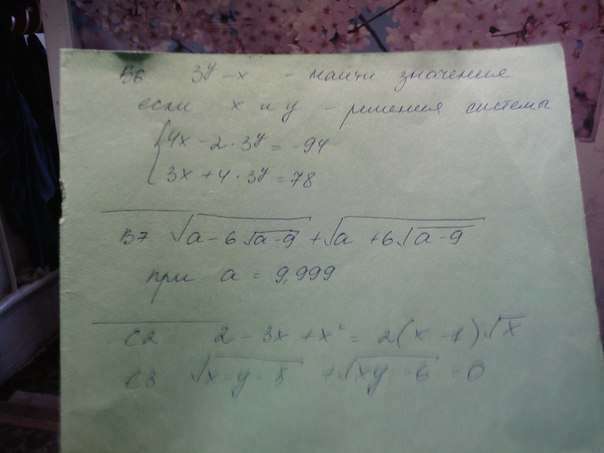 В6 3^y - x - найти значения
если x и y - решения системы
{4x - 2·3^y = -94
3x + 4·3^y = 78
В7 √(a-6√(a-9)) + √(a+6√(a-9))
при a = 9,999
С2 2 - 3x + x² = 2(x-1)√x
С3 √(x-y-5) + √(xy-6) = 0